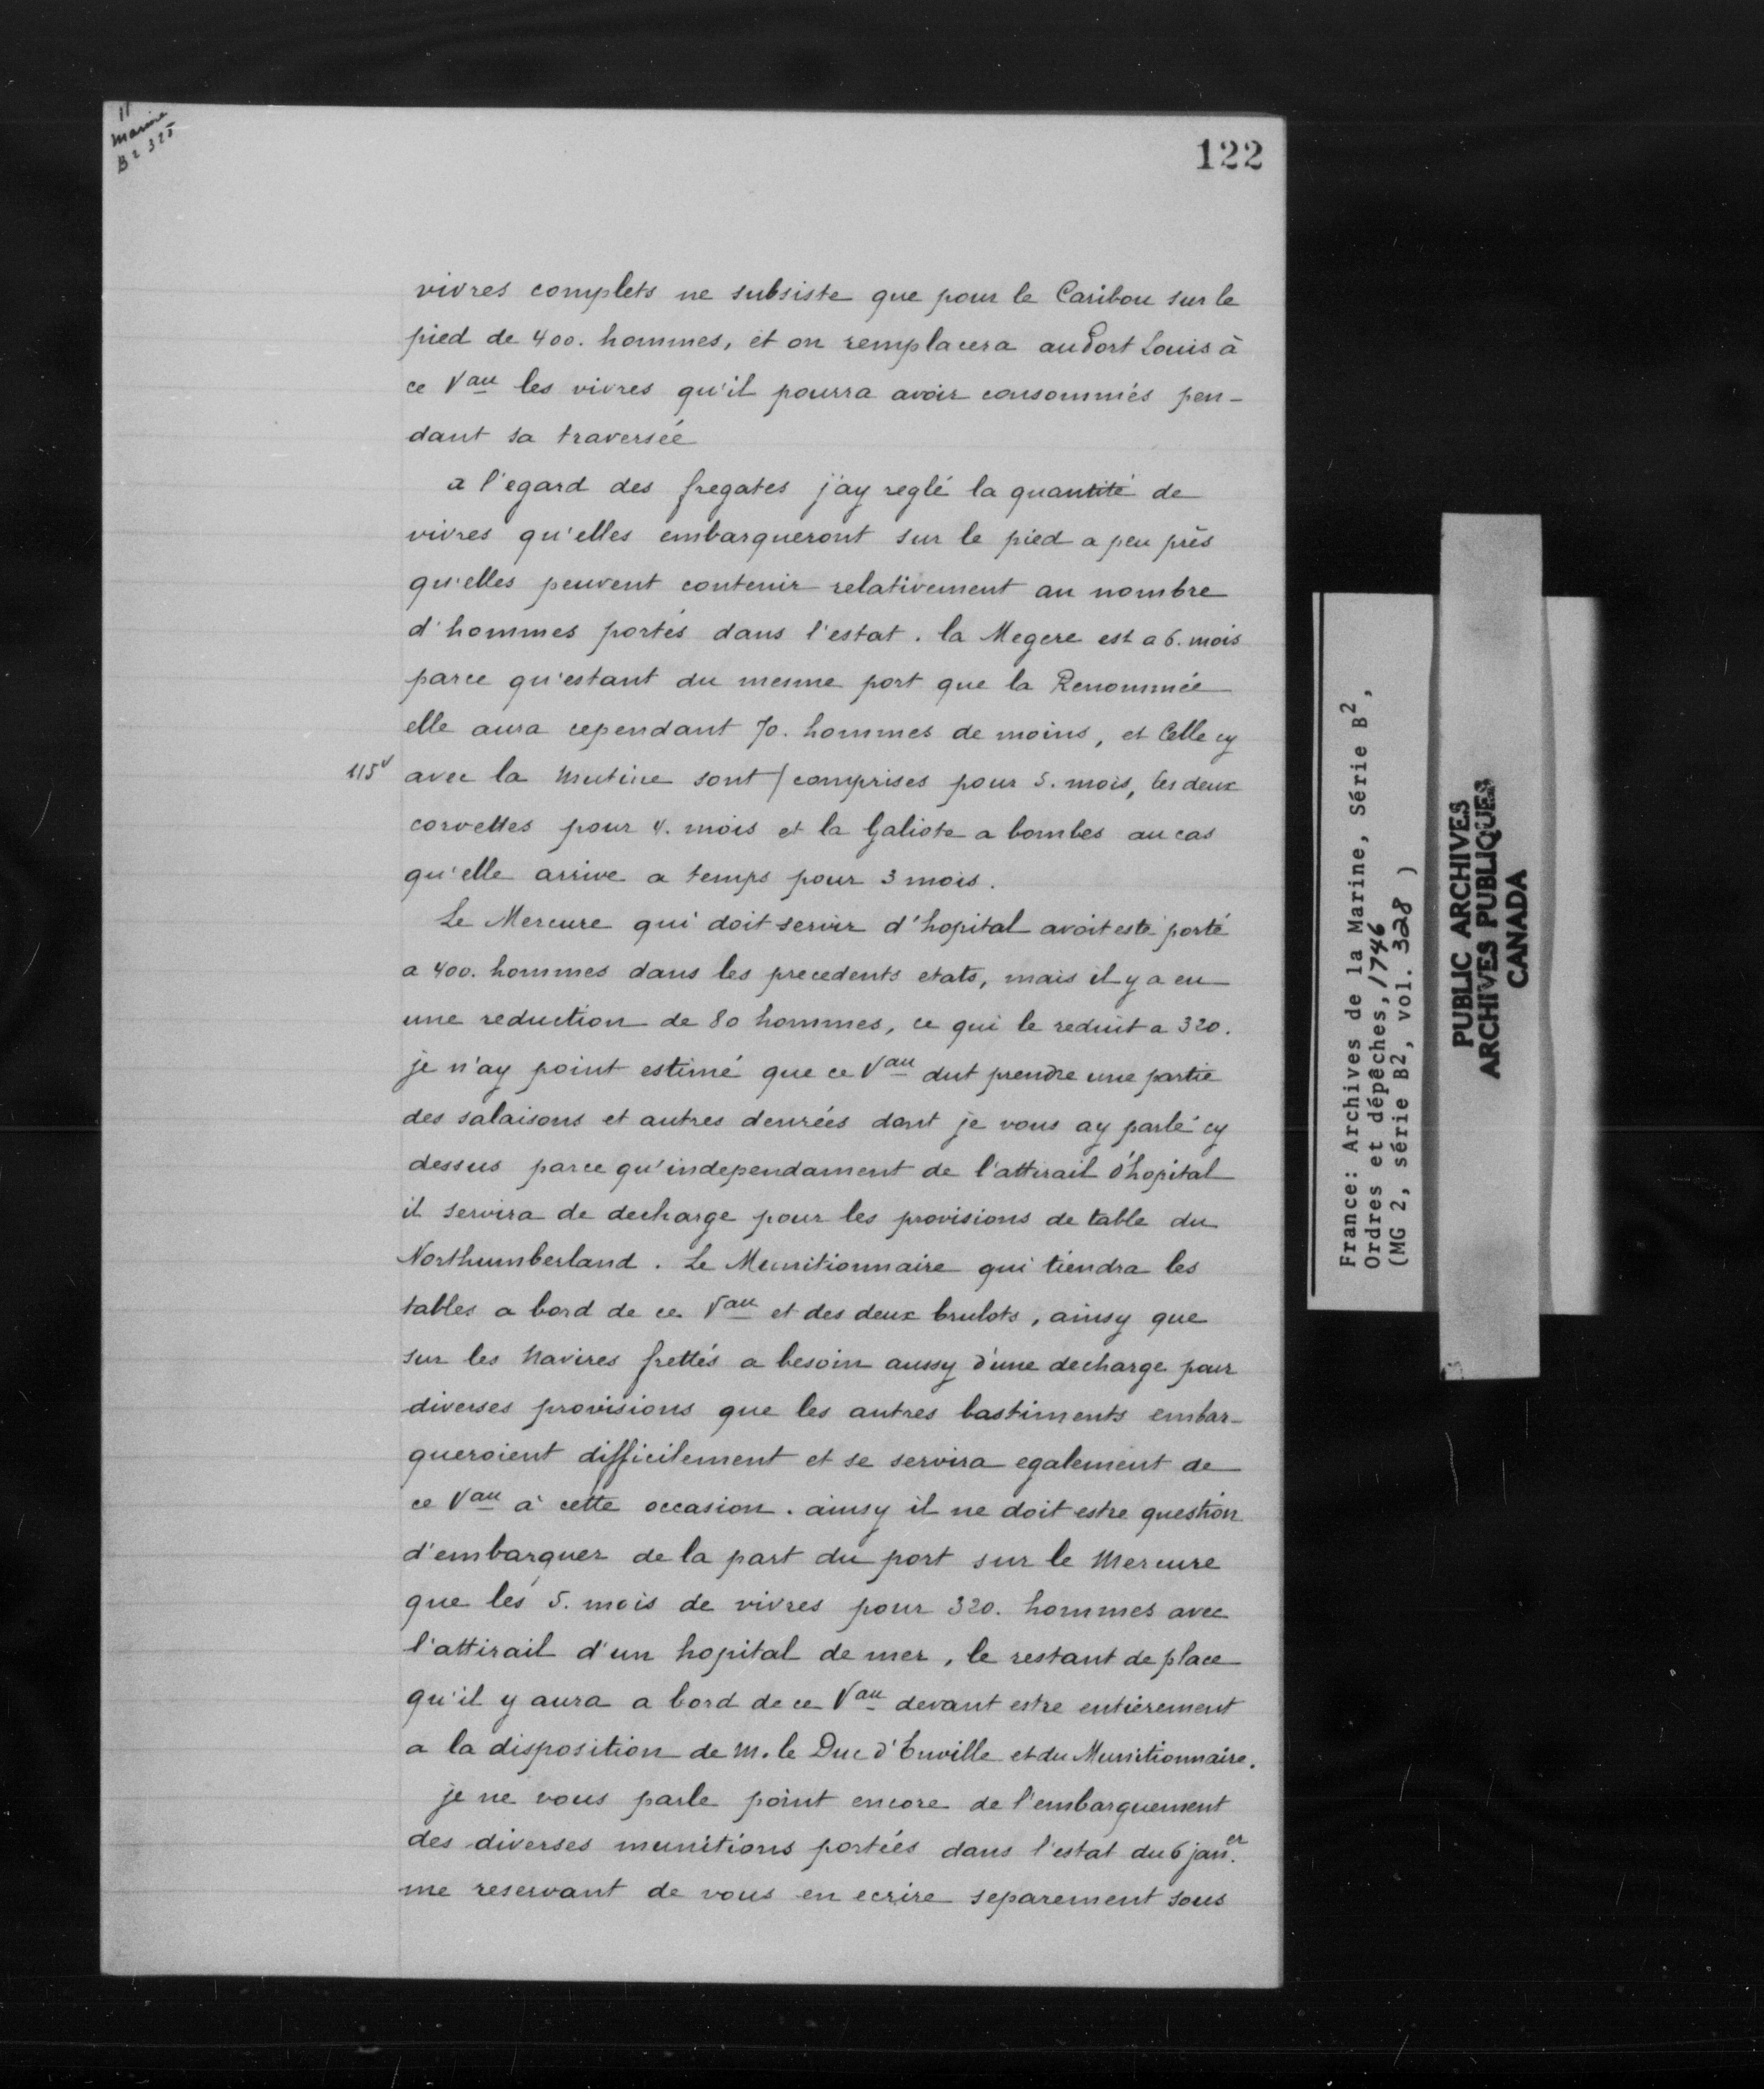 11
Marine
B2 325
122
vivres complets ne subsiste que pour le Caribou sur le
pied de 400. hommes, et on remplacera au Port Louis à
ce Vau les vivres qu'il pourra avoir consommés pen-
dant sa traversée
a l'egard des fregates j'ay reglé la quantité de
vivres qu'elles embarqueront sur le pied a peu près
qu'elles peuvent contenir relativement au nombre
d'hommes portés dans l'estat. la Megere est a 6. mois
parce qu'estant du mesme port que la Renommée
elle aura cependant 70. hommes de moins, et Celle cy
115v avec la Mutine sont / comprises pour 5. mois, les deux
corvettes pour 4. mois et la Galiote a bombes au cas
qu'elle arrive a temps pour 3 mois.
Le Mercure qui doit servir d'hopital avoit esté porté
a 400. hommes dans les precedents etats, mais il y a eu
une reduction de 80 hommes, ce qui le reduit a 320.
je n'ay point estimé que ce Vau dut prendre une partie
des salaisons et autres denrées dont je vous ay parlé cy
dessus parce qu'independament de l'attirail d'hopital
il servira de decharge pour les provisions de table du
Northumberland. Le Munitionnaire qui tiendra les
tables a bord de ce Vau et des deux brulots, ainsy que
sur les Navires frettés a besoin aussy d'une decharge pour
diverses provisions que les autres bastiments embar-
queroient difficilement et se servira egalement de
ce Vau à cette occasion. ainsy il ne doit estre question
d'embarquer de la part du port sur le Mercure
que les 5. mois de vivres pour 320. hommes avec
l'attirail d'un hopital de mer, le restant de place
qu'il y aura a bord de ce Vau devant estre entièrement
a la disposition de M. le Duc d'Enville et du Munitionnaire.
je ne vous parle point encore de l'embarquement
des diverses munitions portées dans l'estat du 6 janer.
me reservant de vous en ecrire separement sous
France: Archives de la Marine, Série B2,
Ordres et dépêches, 1746
(MG 2, série B2, vol. 328 )
PUBLIC ARCHIVES
ARCHIVES PUBLIQUES
CANADA